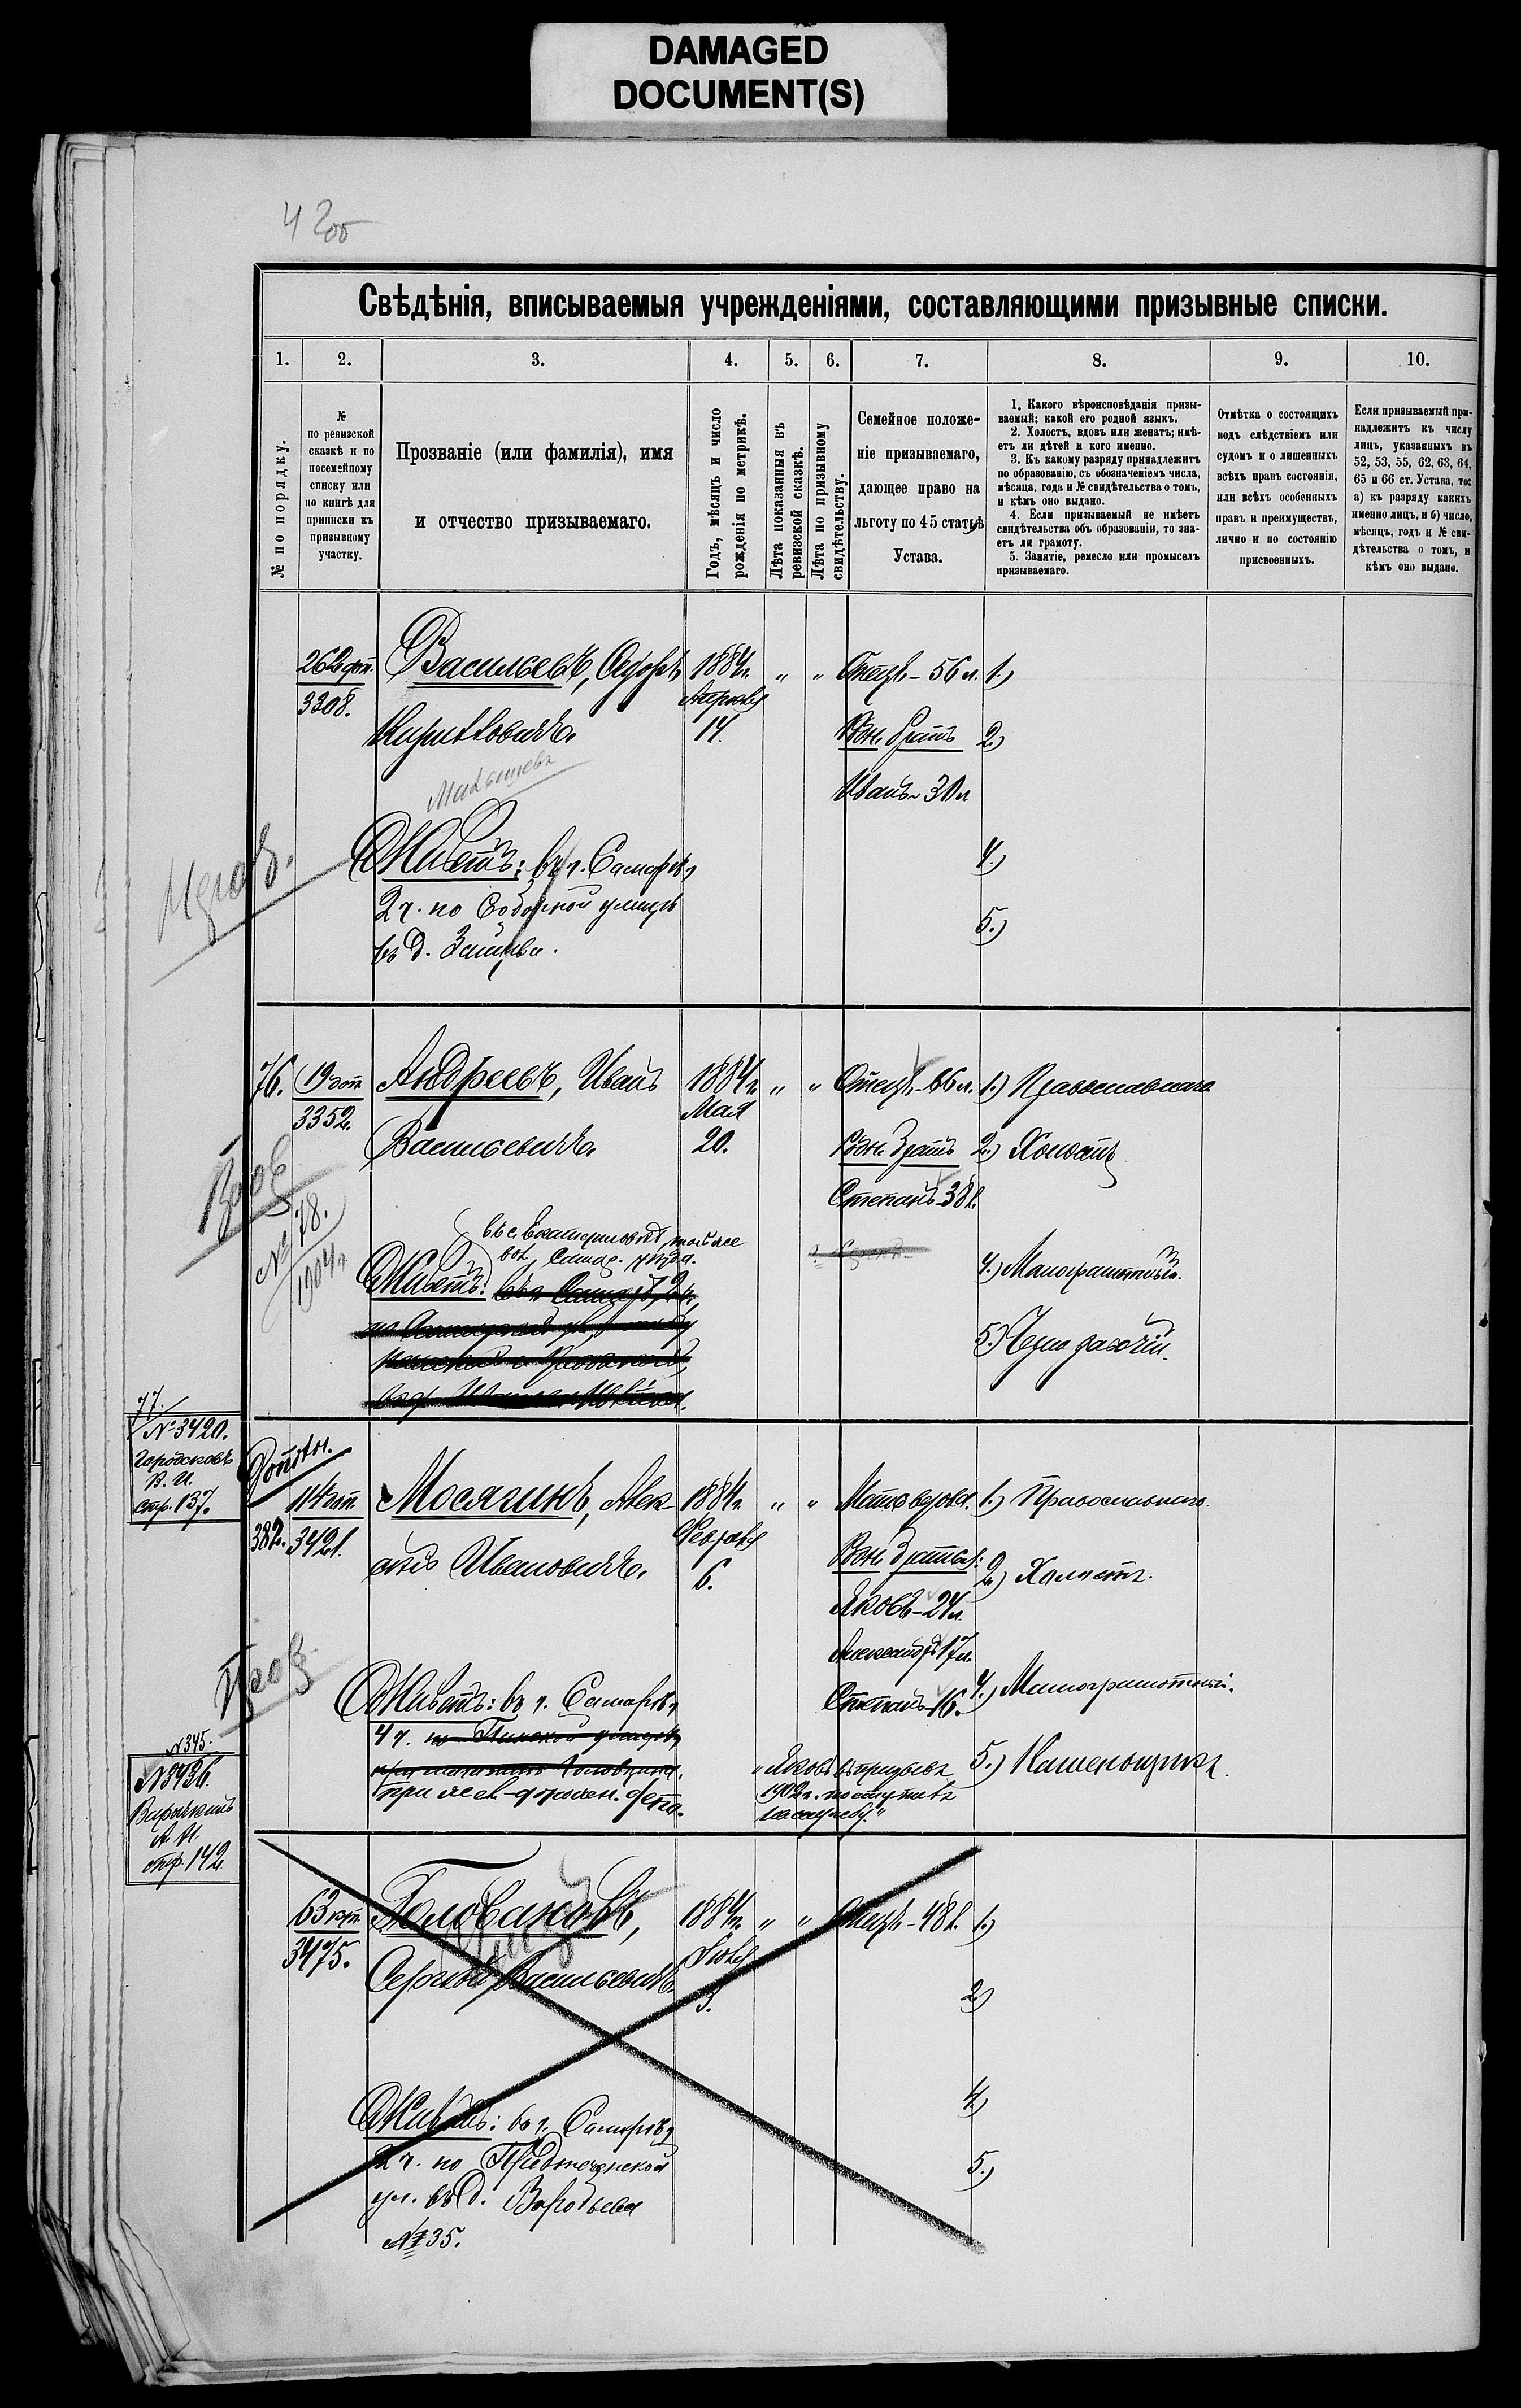 DAMAGED
DOCUMENT(S)
42об
Свѣдѣнія, вписываемыя учрежденіями, составляющими призывные списки.
1. 2. 3. 4. 5. 6. 7. 8. 9. 10.
№ по порядку.
№
по ревизской
сказкѣ и по
посемейному
списку или
по книгѣ для
приписки къ
призывному
участку.
Прозваніе (или фамилія), имя
и отчество призываемаго.
Годъ, мѣсяцъ и число
рожденія по метрикѣ.
Лѣта показанныя въ
ревизской сказкѣ.
Лѣта по призывному
свидѣтельству.
Семейное положе-
ніе призываемаго,
дающее право на
льготу по 45 статьѣ
Устава.
1. Какого вѣроисповѣданія призы-
ваемый; какой его родной языкъ.
2. Холостъ, вдовъ или женатъ; имѣ-
етъ ли дѣтей и кого именно.
3. Къ какому разряду принадлежитъ
по образованію, съ обозначеніемъ числа,
мѣсяца, года и № свидѣтельства о томъ,
и кѣмъ оно выдано.
4. Если призываемый не имѣетъ
свидѣтельства объ образованіи, то зна-
етъ ли грамоту.
5. Занятіе, ремесло или промыселъ
призываемаго.
Отмѣтка о состоящихъ
подъ слѣдствіемъ или
судомъ и о лишенныхъ
всѣхъ правъ состоянія,
или всѣхъ особенныхъ
правъ и преимуществъ,
лично и по состоянію
присвоенныхъ.
Если призываемый при-
надлежитъ къ числу
лицъ, указанныхъ въ
52, 53, 55, 62, 63, 64,
65 и 66 ст. Устава, то:
а) къ разряду какихъ
именно лицъ, и б) число,
мѣсяцъ, годъ и № сви-
дѣтельства о томъ, и
кѣмъ оно выдано.
262 Васильевъ, Ѳедоръ 1884г. " " Отецъ - 56 л. 1.)
3308. Апрѣля
Кирилловичъ. 14. Родн. братъ 2.)
Иванъ - 30 л.
Живетъ: въ г. Самарѣ, 4.)
2 ч. по Соборной улицѣ 5.)
въ д. Зайцева.
76. 19 Андреевъ, Иванъ 1884г. " " Отецъ - 66 л. 1.) Православнаго
3352. Мая
Васильевичъ. 20. Родн. братъ 2.) Холостъ
Степанъ 38 л.
№ 78.
1904г.
въ с. Екатериновкѣ, той же
вол., Самар. уѣзда.
Живетъ: 4.) Малограмотный.
5.) Чернорабочій.
77.
№ 3420.
Городсковъ
В. И.
стр. 137.
114 Мосягинъ, Алек- 1884г. " " Мать вдова. 1.) Православнаго.
382. 3421. Февраля
сѣй Ивановичъ. 6. Родн. братья: 2.) Холостъ.
Яковъ - 24 л.
Александръ 17 л.
Живетъ: въ г. Самарѣ, Степанъ - 16. 4.) Малограмотный.
4 ч.
при жел-дорожн. депо.
"Яковъ въ призывъ 5.) Каменьщикъ.
1902г. поступилъ
на службу."
№ 345.
№ 3436.
А. И.
стр. 142.
63 Головановъ, 1884г. " " Отецъ - 48 л. 1.)
3475. Іюля
Сергѣй Васильевичъ. 3. 2.)
Живетъ: въ г. Самарѣ, 4.)
2 ч. по Предтеченской 5.)
ул. въ д. Воробьева
№ 35.